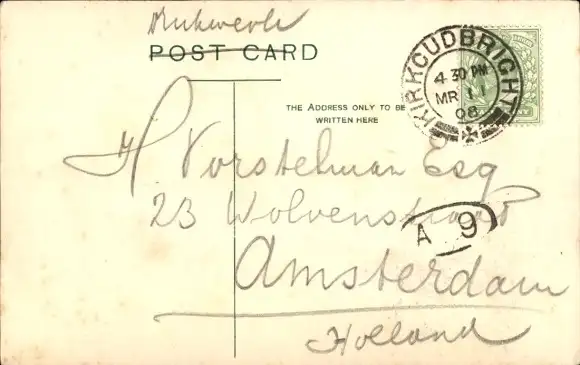 Drukwerk
POST CARD
THE ADDRESS ONLY TO BE
WRITTEN HERE
KIRKCUDBRIGHT
4 30 PM
MR 11
08
H Vorstelman Esq
23 Wolvenstraat
A 9
Amsterdam
Holland